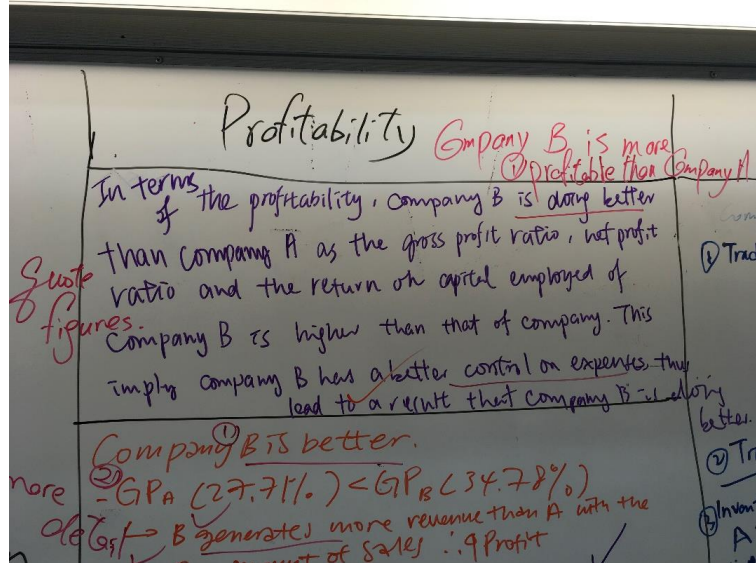 Profitability
Company B is more
① profitable than Company A
In terms of the profitability, company B is doing better
than company A as the gross profit ratio, net profit
ratio and the return on capital employed of
company B is higher than that of company. This
imply company B has a better control on expenses, thus
lead to a result that company B is doing
better.
quote
figures.
① Company B is better.
② - GPA (27.71%) < GPB (34.78%)
more
B generates more revenue than A with the
of sales ∴ Profit
① Trad
②
③ Inven
A